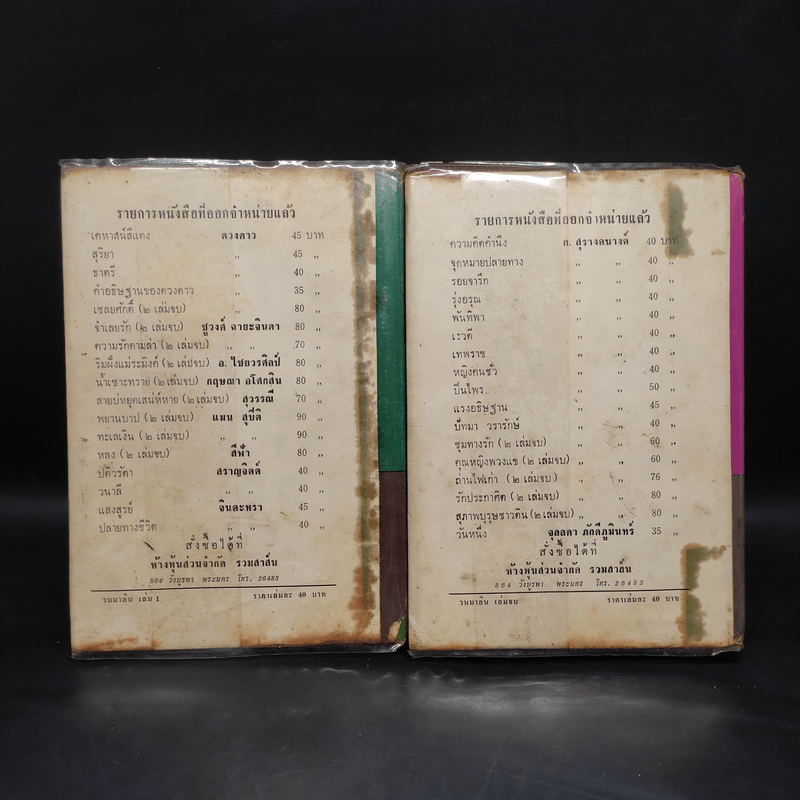 รายการหนังสือที่ออกจำหน่ายแล้ว
เคหาสน์สีแดง ดวงดาว 45 บาท
สุริยา ,, 45 ,,
ธาตรี ,, 40 ,,
คำอธิษฐานของดวงดาว ,, 35 ,,
เชลยศักดิ์ (๒ เล่มจบ) ,, 80 ,,
จำเลยรัก (๒ เล่มจบ) ชูวงศ์ ฉายะจินดา 80 ,,
ความรักดามล่า (๒ เล่มจบ) ,, ,, 70 ,,
ริมฝั่งแม่ระมิงค์ (๒ เล่มจบ) อ. ไชยวรศิลป์ 80 ,,
น้ำเซาะทราย (๒ เล่มจบ) กฤษณา อโศกสิน 80 ,,
สายบ่หยุดเสน่ห์หาย (๒ เล่มจบ) สุวรรณี 70 ,,
พยานบาป (๒ เล่มจบ) แมน สุปิติ 90 ,,
ทะเลเงิน (๒ เล่มจบ) ,, ,, 90 ,,
หลง (๒ เล่มจบ) สีฟ้า 80 ,,
ปดิวรัดา สราญจิตต์ 40 ,,
วนาลี ,, ,, 40 ,,
แสงสูรย์ จินตะหรา 45 ,,
ปลายทางชีวิต ,, ,, 40 ,,
สั่งซื้อได้ที่
ห้างหุ้นส่วนจำกัด รวมสาส์น
864 วังบูรพา พระนคร โทร. 26483
วนมาลิน เล่ม 1 ราคาเล่มละ 40 บาท
รายการหนังสือที่ออกจำหน่ายแล้ว
ความคิดคำนึง ก. สุรางคนางค์ 40 บาท
จุดหมายปลายทาง ,, ,, 40 ,,
รอยจารึก ,, ,, 40 ,,
รุ่งอรุณ ,, ,, 40 ,,
พันทิพา ,, ,, 40 ,,
เรวดี ,, ,, 40 ,,
เทพราช ,, ,, 40 ,,
หญิงคนชั่ว ,, ,, 40 ,,
ปิ่นไพร ,, ,, 50 ,,
แรงอธิษฐาน ,, ,, 45 ,,
ปัทมา วรารักษ์ ,, ,, 40 ,,
ชุมทางรัก (๒ เล่มจบ) ,, ,, 60 ,,
คุณหญิงพวงแข (๒ เล่มจบ) ,, ,, 60 ,,
ถ่านไฟเก่า (๒ เล่มจบ) ,, ,, 76 ,,
รักประกาศิต (๒ เล่มจบ) ,, ,, 80 ,,
สุภาพบุรุษชาวดิน (๒ เล่มจบ) ,, ,, 80 ,,
วันหนึ่ง จุลลดา ภักดีภูมินทร์ 35 ,,
สั่งซื้อได้ที่
ห้างหุ้นส่วนจำกัด รวมสาส์น
864 วังบูรพา พระนคร โทร. 26483
วนมาลิน เล่มจบ ราคาเล่มละ 40 บาท